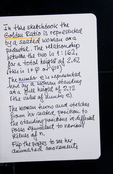 In this sketchbook the
Golden Ratio is represented
by a seated woman on a
pedestal. The relationship
between the two is 1:1.62,
for a total height of 2.62
The number e is represented
by a woman standing
at a full height of 2.72
(the value of
The woman turns and stretches
from her seated position to
the standing position in different
poses equivalent to various
values of
Flip the pages to see her
movements